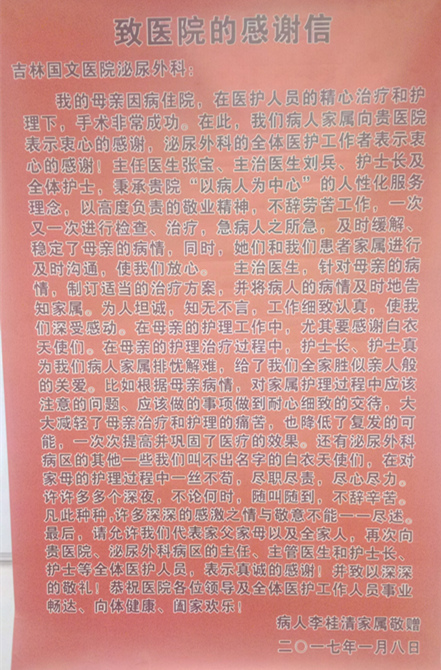 致医院的感谢信
吉林国文医院泌尿外科：
我的母亲因病住院，在医护人员的精心治疗和护
理下，手术非常成功。在此，我们病人家属向贵医院
表示衷心的感谢，泌尿外科的全体医护工作者表示衷
心的感谢！主任医生张宝、主治医生刘兵、护士长及
全体护士，秉承贵院“以病人为中心”的人性化服务
理念，以高度负责的敬业精神，不辞劳苦工作，一次
又一次进行检查、治疗，急病人之所急，及时缓解、
稳定了母亲的病情，同时，她们和我们患者家属进行
及时沟通，使我们放心。 主治医生，针对母亲的病
情，制订适当的治疗方案，并将病人的病情及时地告
知家属。为人坦诚，知无不言，工作细致认真，使我
们深受感动。在母亲的护理工作中，尤其要感谢白衣
天使们。在母亲的护理治疗过程中，护士长、护士真
为我们病人家属排忧解难，给了我们全家胜似亲人般
的关爱。比如根据母亲病情，对家属护理过程中应该
注意的问题、应该做的事项做到耐心细致的交待，大
大减轻了母亲治疗和护理的痛苦，也降低了复发的可
能，一次次提高并巩固了医疗的效果。还有泌尿外科
病区的其他一些我们叫不出名字的白衣天使们，在对
家母的护理过程中一丝不苟，尽职尽责，尽心尽力。
许许多多个深夜，不论何时，随叫随到，不辞辛苦。
凡此种种，许多深深的感激之情与敬意不能一一尽述。
最后，请允许我们代表家父家母以及全家人，再次向
贵医院、泌尿外科病区的主任、主管医生和护士长、
护士等全体医护人员，表示真诚的感谢！并致以深深
的敬礼！恭祝医院各位领导及全体医护工作人员事业
畅达、向体健康、阖家欢乐！
病人李桂清家属敬赠
二〇一七年一月八日